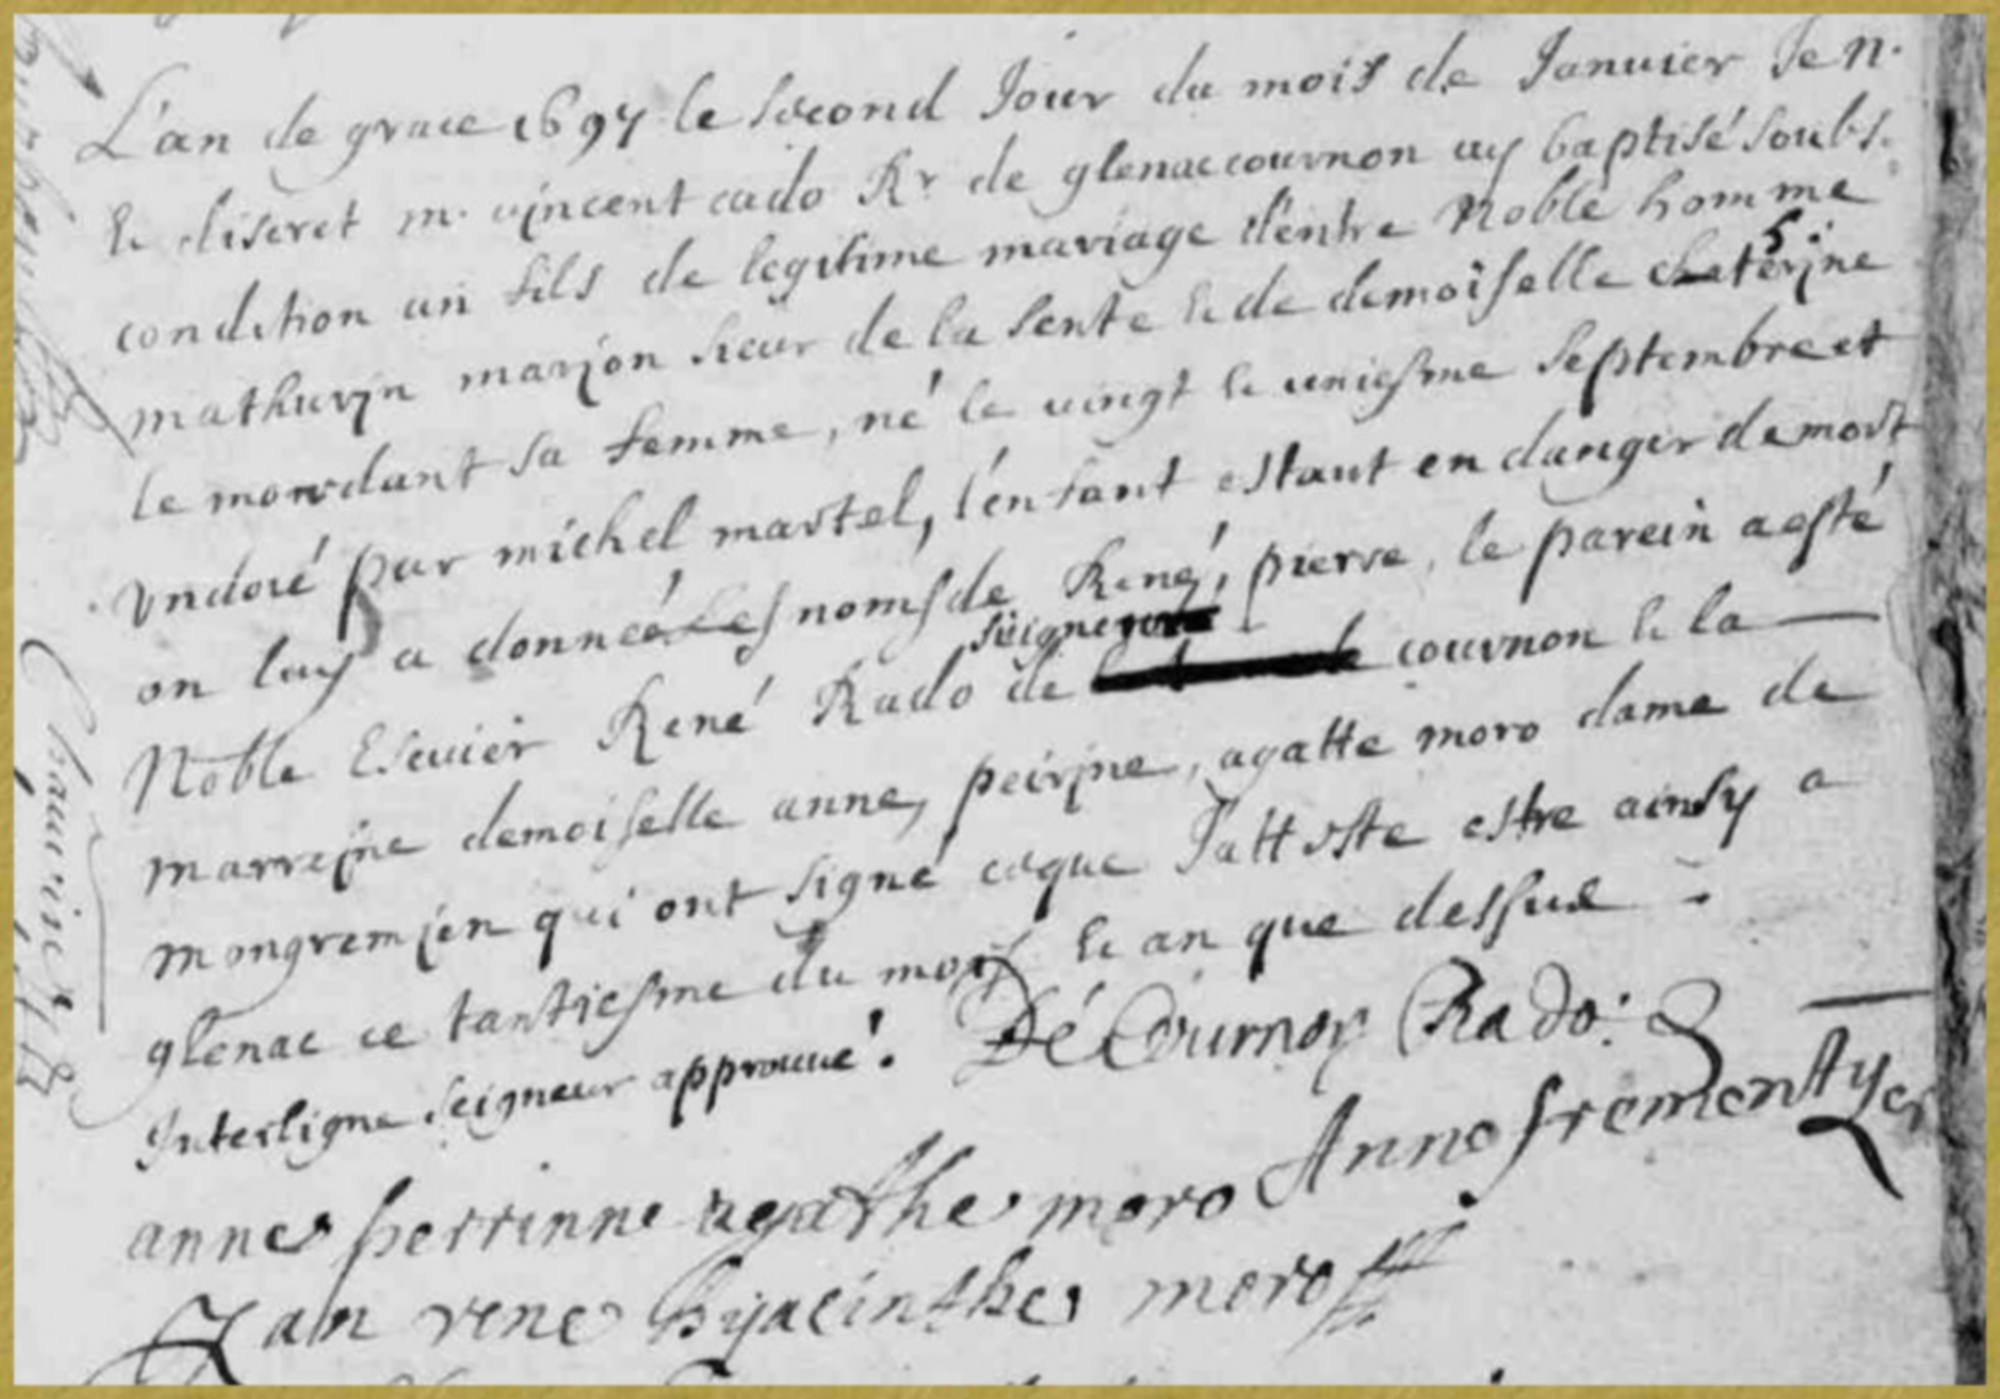 L'an de grace 1697 le second Jour du mois de Januier Je n.
& discret m. vjncent cado Rr de glenac cournon ay baptisé soubs.
condition un fils de legitime mariage d'entre Noble homme
mathurjn marjon sieur de la sente & de demoiselle caterjne
le mordant sa femme, né le vingt & uniesme septembre et
vndoié par michel martel, l'enfant estant en danger de mort
on luy a donné les noms de René, pierre, le parein a esté
seigneur
Noble Escuier René Rado de cournon & la
marrejne demoiselle anne, peirjne, agatte moro dame de
mongremjen qui ont signé ceque J'atteste estre ainsy a
glenac ce tantiesme du mois & an que dessus
Interligne seigneur approuué.
Dé Cournon Rado
anne perrinne agathe moro Anne frementyer
Jan rene hyacinthe moro